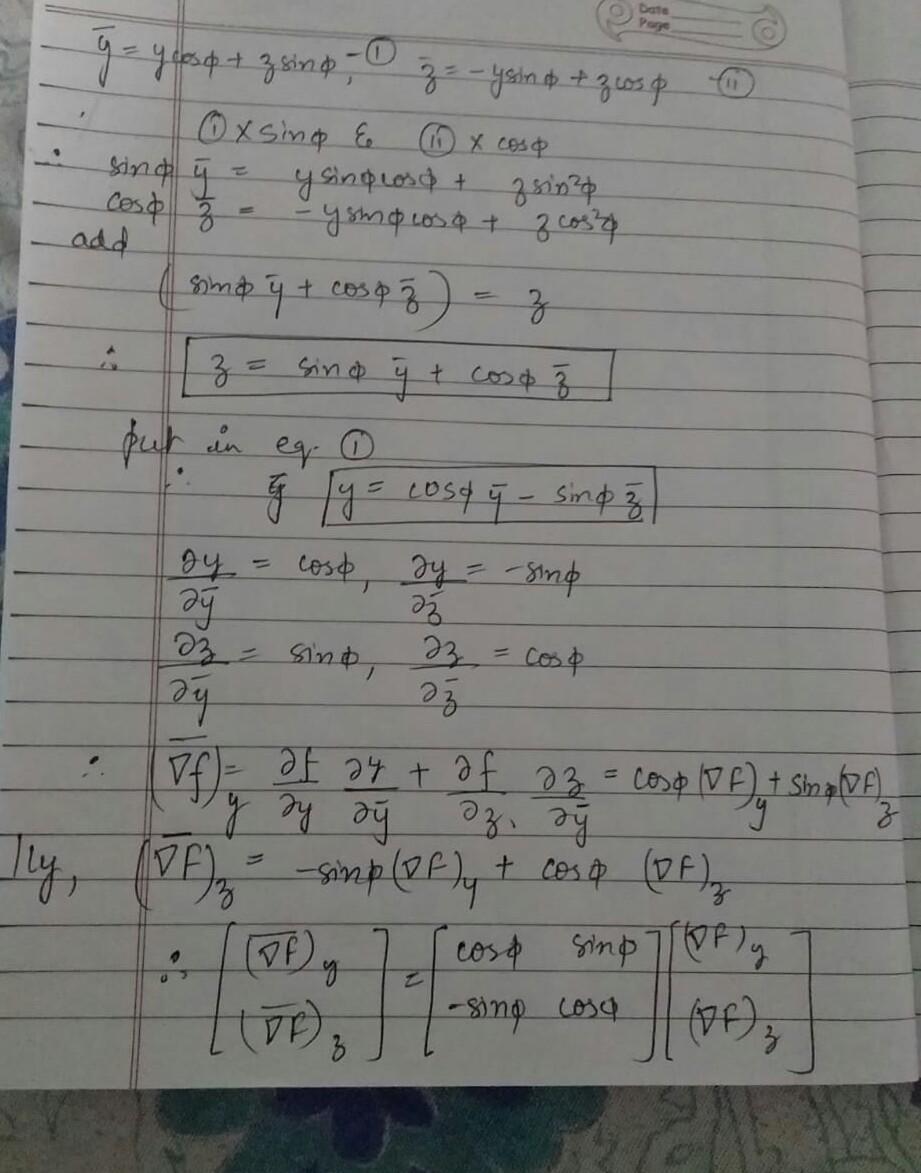 Date
Page
ȳ = ycosφ + zsinφ, -① z̄ = -ysinφ + zcosφ -ⓘⓘ
① × sinφ & ⓘⓘ × cosφ
∴ sinφ ȳ = y sinφcosφ + z sin²φ
cosφ z̄ = - y sinφcosφ + z cos²φ
add
(sinφ ȳ + cosφ z̄) = z
∴ z = sinφ ȳ + cosφ z̄
put in eq. ①
∴ ȳ y = cosφ ȳ - sinφ z̄
∂y/∂ȳ = cosφ, ∂y/∂z̄ = -sinφ
∂z/∂ȳ = sinφ, ∂z/∂z̄ = cosφ
∴ (∇̅f̅)y = ∂f/∂y ∂y/∂ȳ + ∂f/∂z . ∂z/∂ȳ = cosφ(∇f)y + sinφ(∇f)z
lly, (∇̅f̅)z = -sinφ(∇f)y + cosφ (∇f)z
∴ [(∇̅f̅)y] = [cosφ sinφ] [(∇f)y]
[(∇̅f̅)z] [-sinφ cosφ] [(∇f)z]